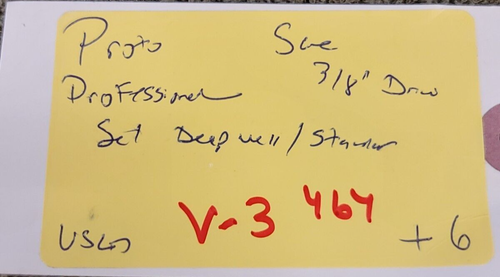 Proto
3/8" Drive
Professional
Set Deepwell/Standar
USED V-3 464 + 6